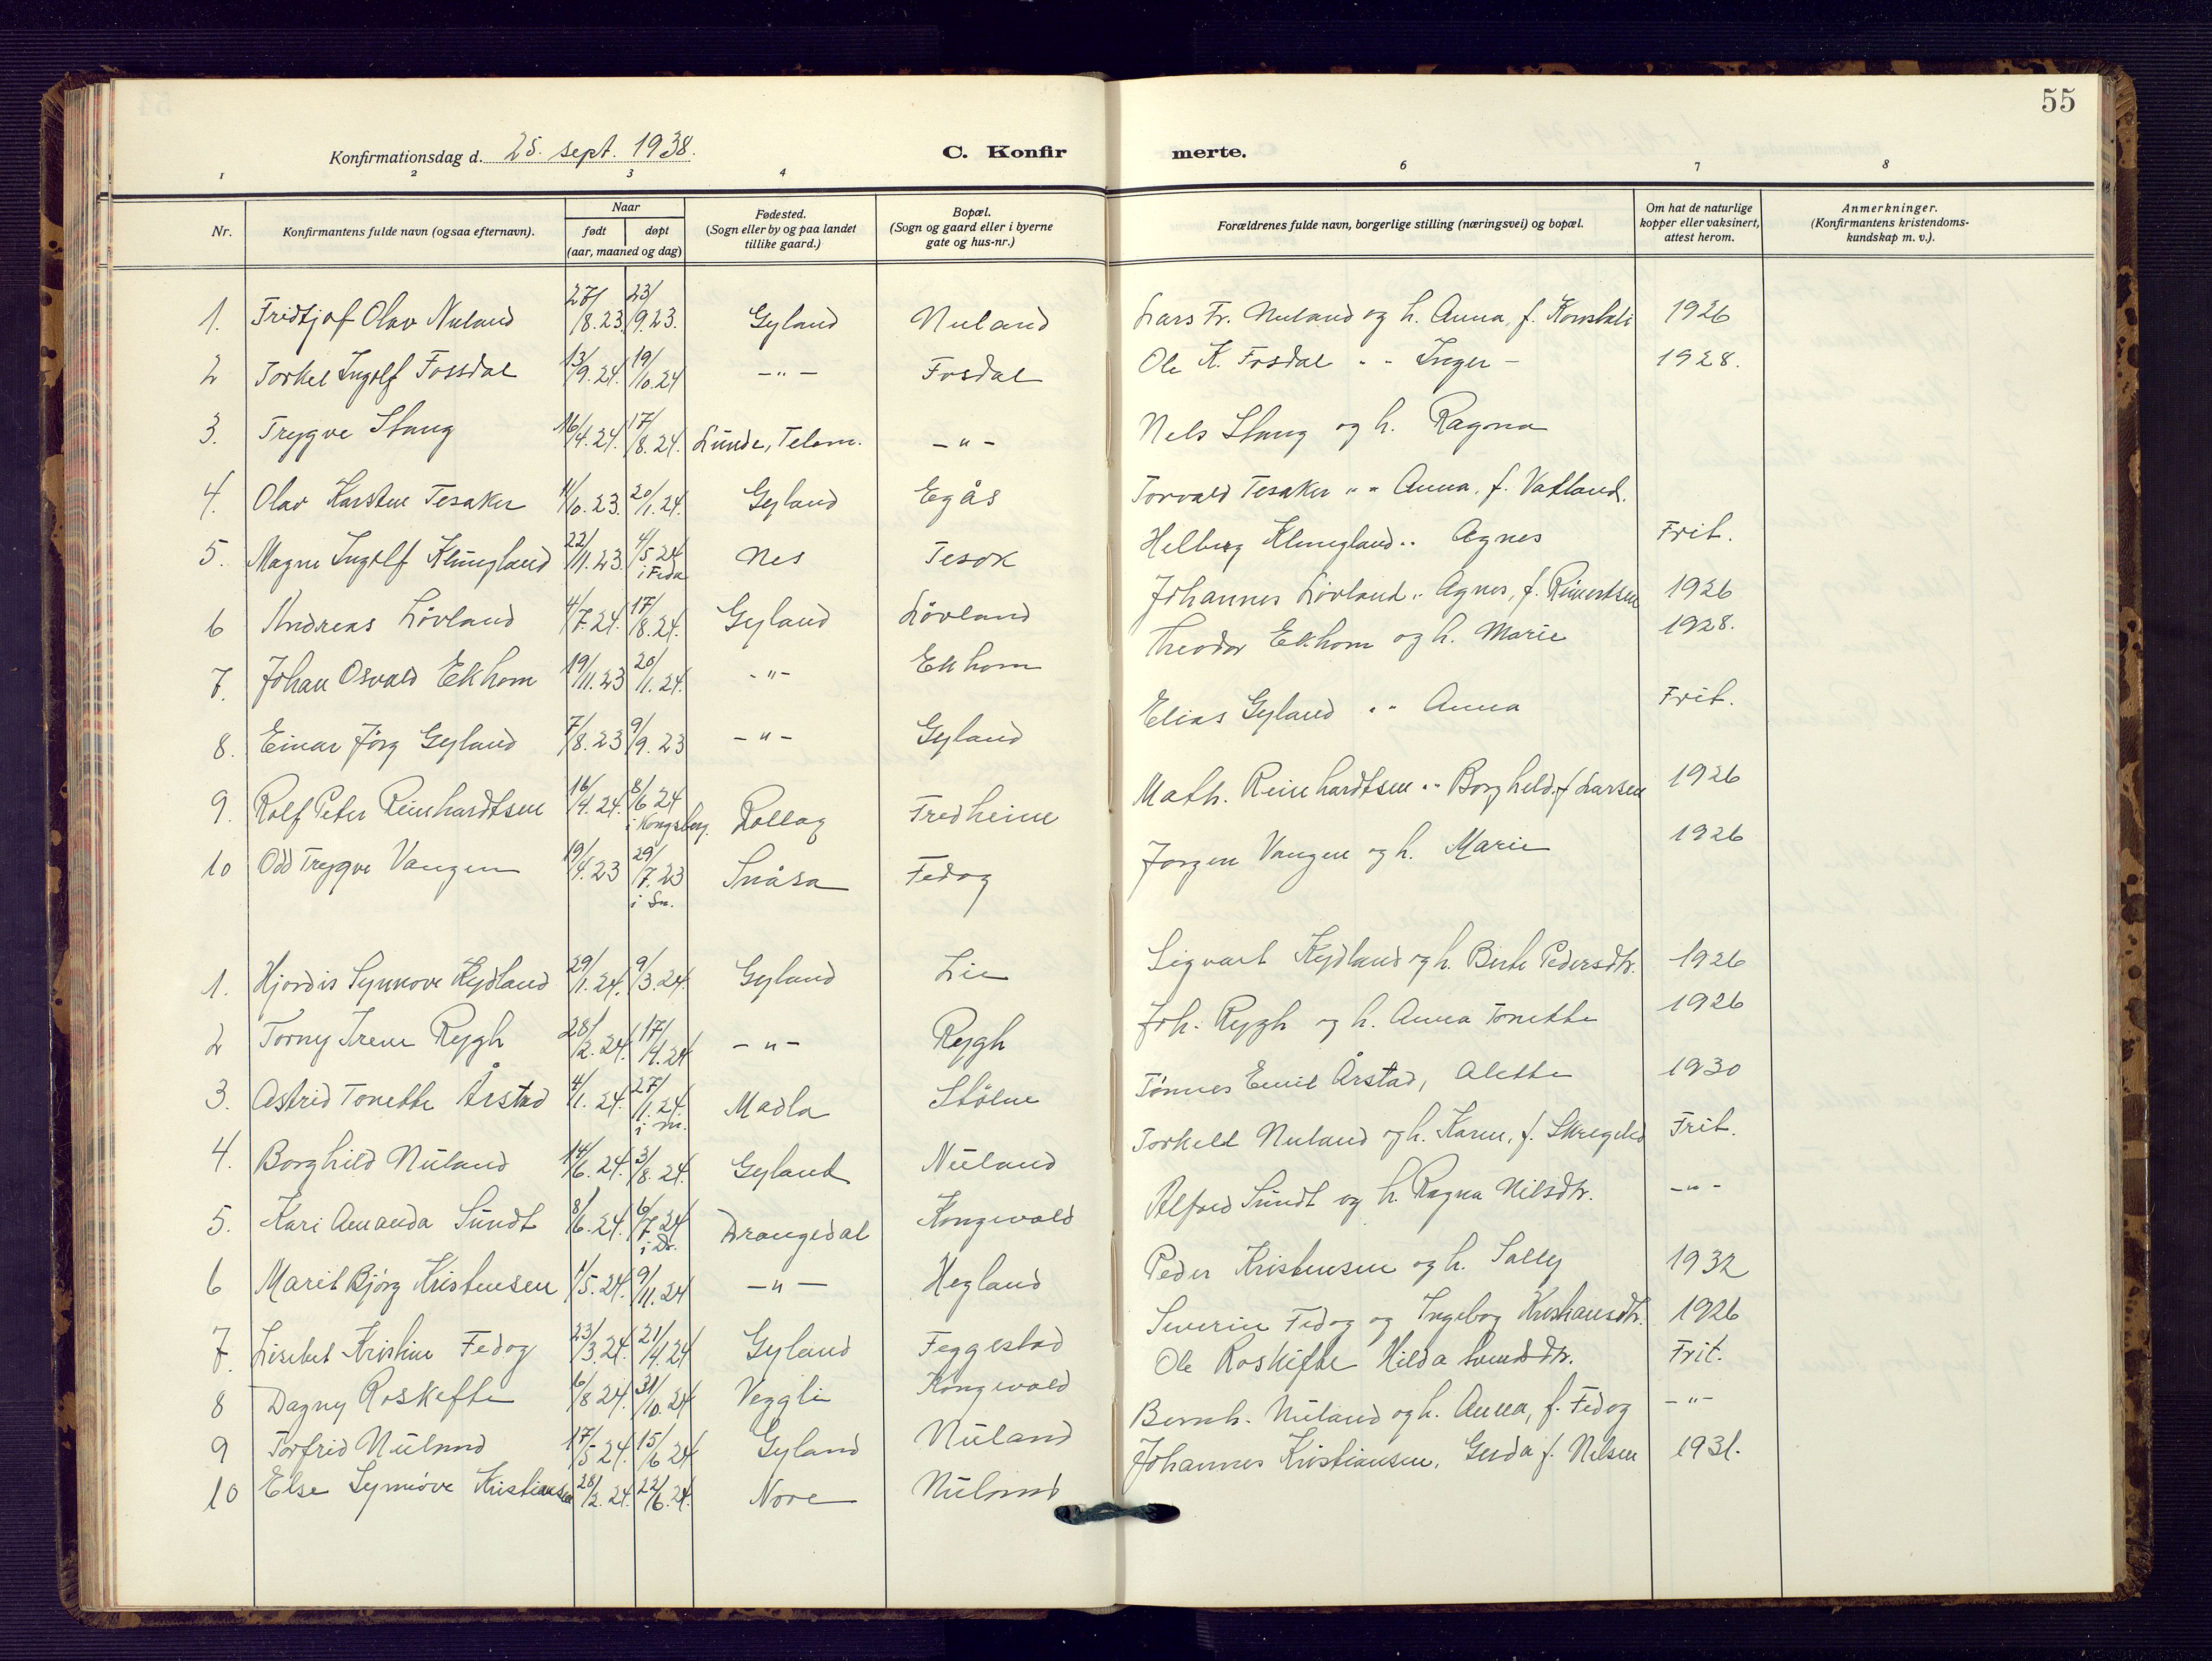 55
Konfirmationsdag d. 25. sept. 1938.
C. Konfir
merte.
1 2 3 4 6 7 8
Nr. Konfirmantens fulde navn (ogsaa efternavn). Naar født døpt (aar, maaned og dag) Fødested. (Sogn eller by og paa landet tillike gaard.) Bopæl. (Sogn og gaard eller i byerne gate og hus-nr.) Forældrenes fulde navn, borgerlige stilling (næringsvei) og bopæl. Om hat de naturlige kopper eller vaksinert, attest herom. Anmerkninger. (Konfirmantens kristendoms-kundskap m. v.).
1. Fridtjof Olav Nuland 27/8.23 23/9.23. Gyland Nuland Lars Fr. Nuland og h. Anna, f. 1926
2 Torkel Ingolf Fossdal 13/9.24. 19/10.24 -"- Fosdal Ole K. Fosdal " " Inger - 1928.
3. Trygve Stang 16/4.24. 17/8.24. Lunde, Telem. -"- Nels Stang og h. Ragna
4. Olav Karsten Tesaker 11/10.23. 20/1.24. Gyland Egås Torvald Tesaker " " Anna, f. Vatland.
5. Magne Ingolf Klungland 22/11.23. 4/5.24 i Feda Nes Tesok Helberg Klungland " Agnes Frit.
6 Andreas Løvland 4/7.24. 17/8.24. Gyland Løvland Johannes Løvland " Agnes, f. Reinertsen 1926
7. Johan Osvald Ekhom 19/11.23 20/1.24. -"- Ekhom Theodor Ekhom og h. Marie 1928.
8. Einar Jörg Gyland 7/8.23 9/9.23 -"- Gyland Elias Gyland " " Anna Frit.
9. Rolf Peter Reinhardtsen 16/4.24. 8/6 24 i Kongsberg. Rollag Fredheim Math. Reinhardtsen " Borghild, f Larsen 1926
10 Odd Trygve Vangen 19/4.23 29/7.23 i Sn. Snåsa Fedog Jorgen Vangen og h. Marie 1926
1. Hjordis Synnove Kydland 29/1.24. 9/3.24. Gyland Lie Sigvart Kydland og h. Berte Pedersdtr. 1926
2 Torny Irene Rygh 28/2.24. 17/4.24 -"- Rygh Joh. Rygh og h. Anna Tonette 1926
3. Astrid Tonette Årstad 4/1.24. 27/1.24. i M. Madla Stølne Tönnes Emil Årstad, Alette 1930
4. Borghild Nuland 14/6.24. 3/8.24. Gyland Nuland Torkell Nuland og h. Karen, f. Frit.
5. Kari Amanda Sundt 8/6.24. 6/7.24 i Dr. Drangedal Kongevold Alfred Sundt og h. Ragna Nilsdtr. -"-
6 Marit Bjørg Kristensen 1/5.24. 9/11.24 -"- Hegland Peder Kristensen og h. Sally 1932
7. Lisebet Kristine Fedog 23/3.24. 21/4.24 Gyland Feggestad Severin Fedog og Ingeborg Kristiansdtr. 1926
8 Dagny Roskifte 6/8 24. 31/10.24 Veggli Kongevold Ole Roskifte Hilda Svendsdtr. Frit.
9 Torfrid Nuland 17/5 24. 15/6 24 Gyland Nuland Bernh. Nuland og h. Anna, f. Fedog -"-
10 Else Synnöve Kristiansen 28/2.24. 22/6.24. Nore Nuland Johannes Kristiansen, Gerda f. Nilsen 1931.